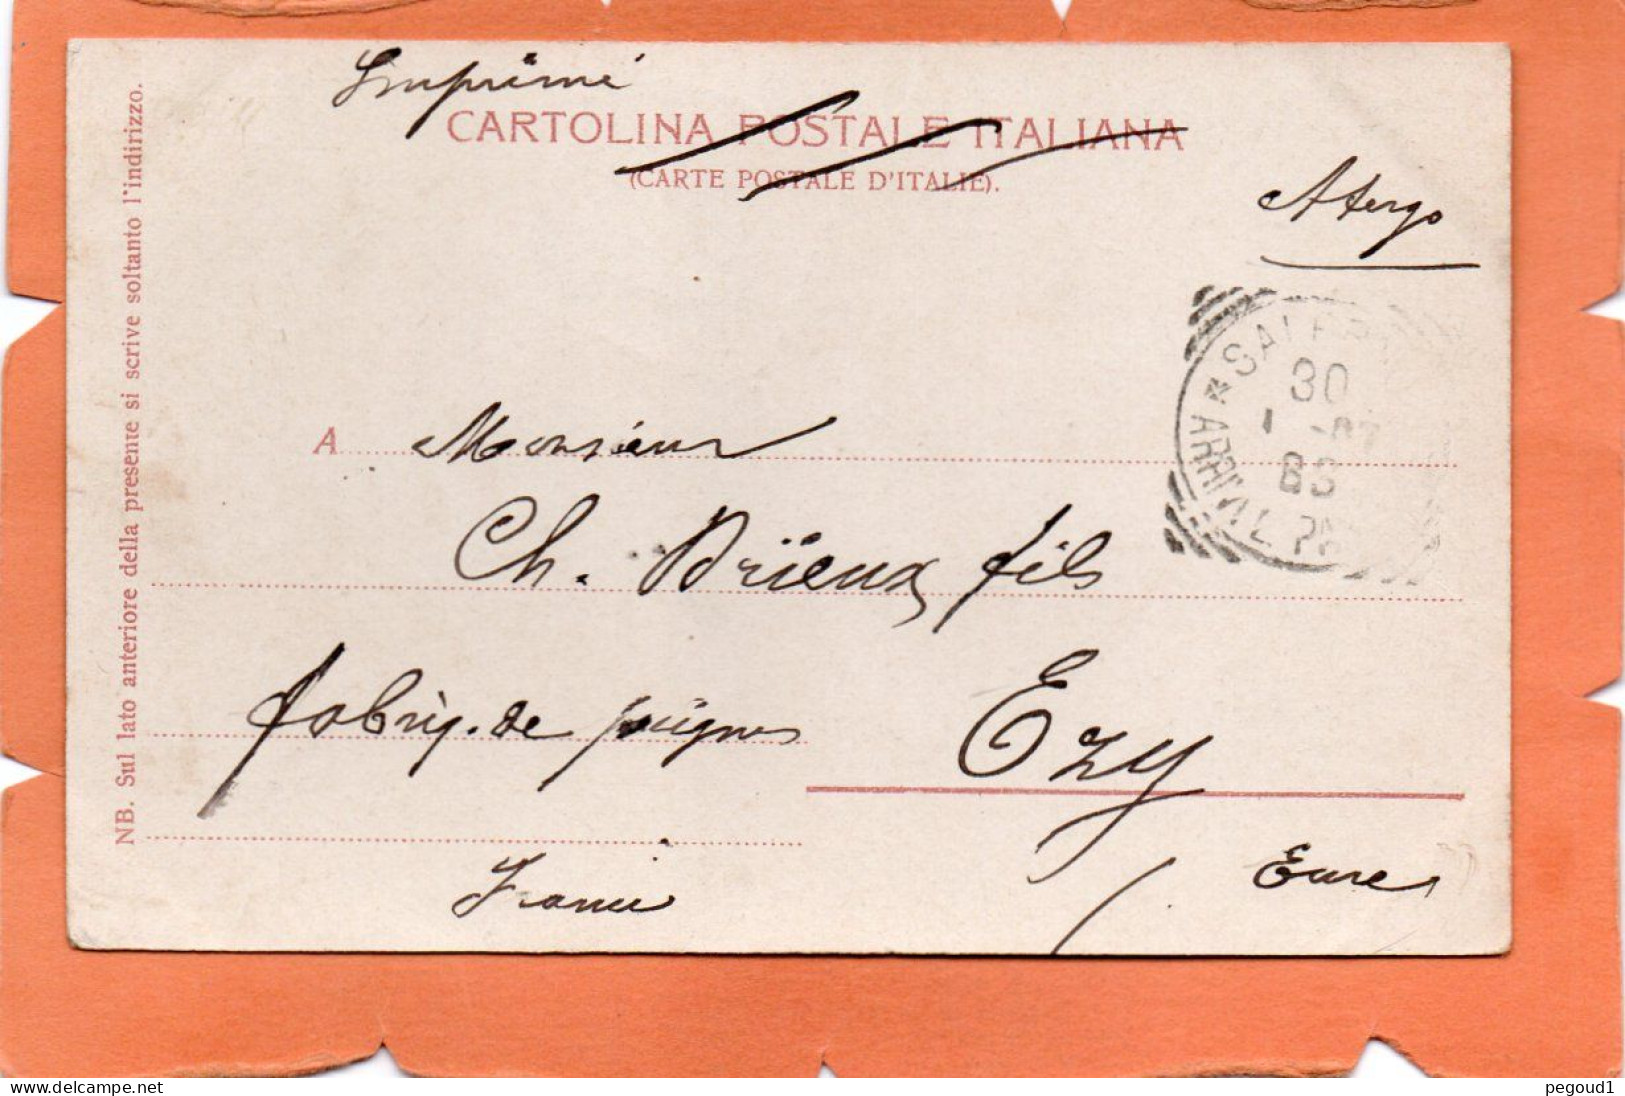 Imprimé
CARTOLINA POSTALE ITALIANA
(CARTE POSTALE D'ITALIE).
A tergo
SALERNO
30
1 -07
ARRIVI E
A Monsieur
Ch. Drieux fils
fabriq. de peignes
Ezy
Eure
France
NB. Sul lato anteriore della presente si scrive soltanto l'indirizzo.
www.delcampe.net
pegoud1